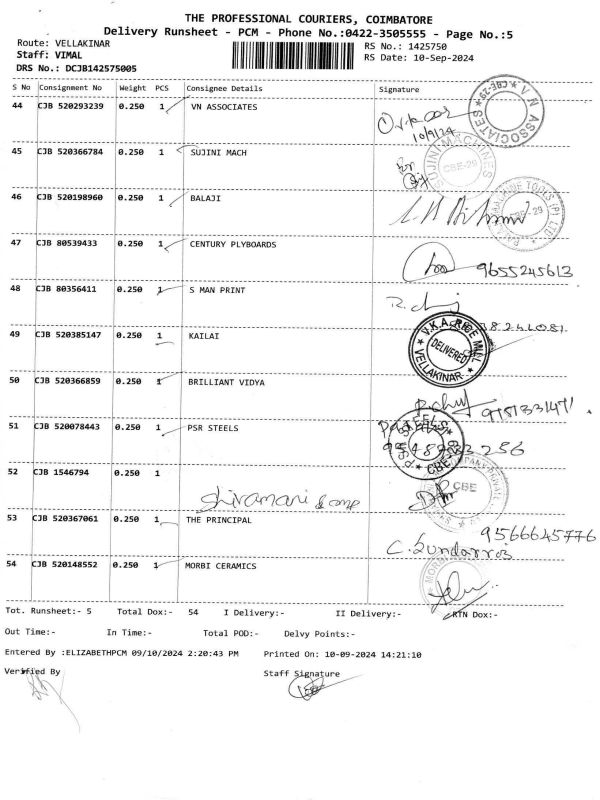 THE PROFESSIONAL COURIERS, COIMBATORE
Delivery Runsheet - PCM - Phone No.:0422-3505555 - Page No.:5
Route: VELLAKINAR RS No.: 1425750
Staff: VIMAL RS Date: 10-Sep-2024
DRS No.: DCJB142575005
S No Consignment No Weight PCS Consignee Details Signature
44 CJB 520293239 0.250 1 VN ASSOCIATES
V N ASSOCIATES CBE-29
10/9/24
45 CJB 520366784 0.250 1 SUJINI MACH
SUJINI MACHINES CBE-29
46 CJB 520198960 0.250 1 BALAJI
MACHINE TOOLS (P) LTD CBE-29
47 CJB 80539433 0.250 1 CENTURY PLYBOARDS
9655245613
48 CJB 80356411 0.250 1 S MAN PRINT
49 CJB 520385147 0.250 1 KAILAI
V.K.A. RICE MILL DELIVERED VELLAKINAR
50 CJB 520366859 0.250 1 BRILLIANT VIDYA
51 CJB 520078443 0.250 1 PSR STEELS
CBE
52 CJB 1546794 0.250 1
Shivamani & comp
CBE
53 CJB 520367061 0.250 1 THE PRINCIPAL
9566645776
C. Sundarraj
54 CJB 520148552 0.250 1 MORBI CERAMICS
MORBI
Tot. Runsheet:- 5 Total Dox:- 54 I Delivery:- II Delivery:- RTN Dox:-
Out Time:- In Time:- Total POD:- Delvy Points:-
Entered By :ELIZABETHPCM 09/10/2024 2:20:43 PM Printed On: 10-09-2024 14:21:10
Verified By Staff Signature